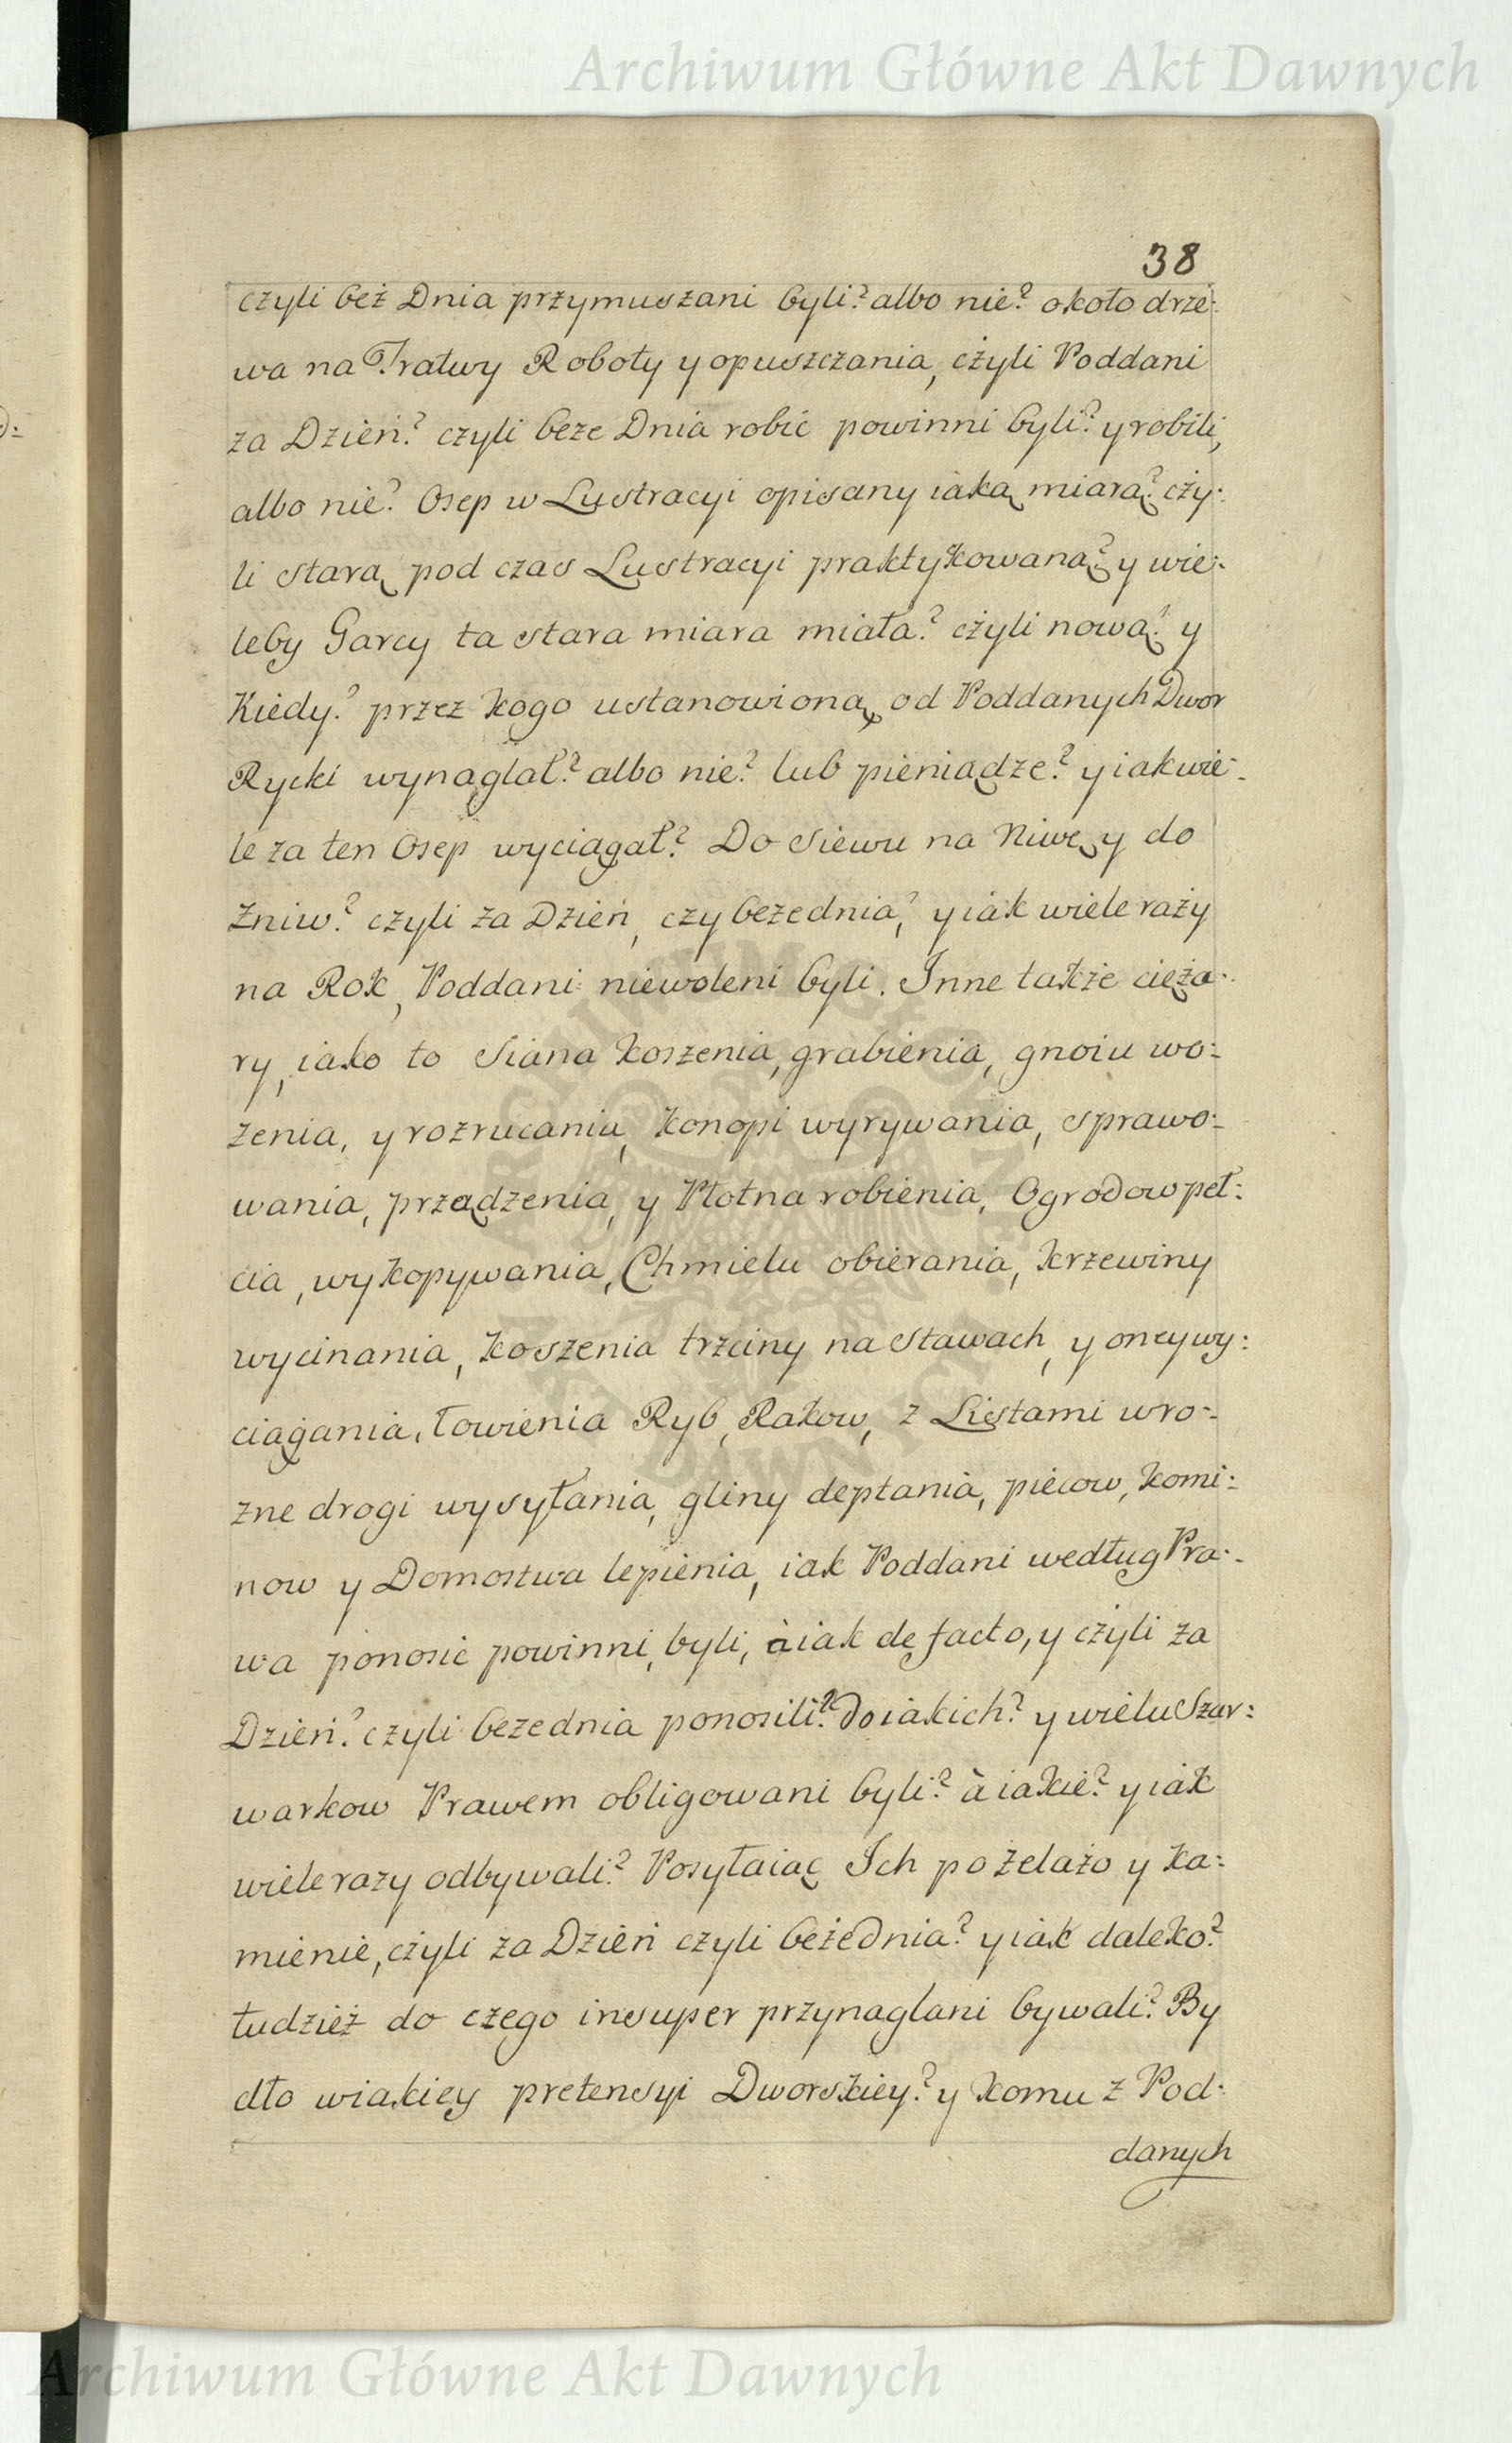 Archiwum Główne Akt Dawnych
38
czyli beż Dnia przymuszani byli? albo nie? około drze:
wa na Tratwy Roboty y opuszczania, cżyli Poddani
za Dzień? czyli beze Dnia robić powinni byli? y robili,
albo nie? Osep w Lustracyi opisany iaką miarą? cży:
li starą pod czas Lustracyi praktykowaną? y wie:
leby Garcy ta stara miara miała? cżyli nową? y
Kiedy? przez kogo ustanowioną, od Poddanych Dwor
Rycki wynaglał? albo nie? lub pieniądze? y iak wie:
le za ten Osep wyciągał? Do siewu na Niwę y do
Żniw? czyli za Dzień, czy bezednia? y iak wiele raży
na Rok, Poddani niewoleni byli. Inne także cięża:
ry, iako to Siana koszenia, grabienia, gnoiu wo:
żenia, y rozrucania, konopi wyrywania, sprawo:
wania, przędzenia, y Płotna robienia, Ogrodow peł:
cia, wykopywania, Chmielu obierania, krzewiny
wycinania, koszenia trzciny na Stawach, y oney wy:
ciągania, łowienia Ryb, Rakow, z Listami w ro:
zne drogi wysyłania, gliny deptania, piecow, komi:
now y Domostwa lepienia, iak Poddani według Pra:
wa ponosić powinni, byli, à iak de facto, y cżyli za
Dzień? czyli bezednia ponosili? do iakich? y wielu Szar:
warkow Prawem obligowani byli? à iakie? y iak
wiele razy odbywali? Posyłaiąc Ich po żelażo y ka:
mienie, cżyli za Dzień czyli beżednia? y iak daleko?
tudzież do czego insuper przynaglani bywali? By
dło w iakiey pretensyi Dworskiey? y komu z Pod:
danych
ARCHIWUM GŁÓWNE AKT DAWNYCH
Archiwum Główne Akt Dawnych